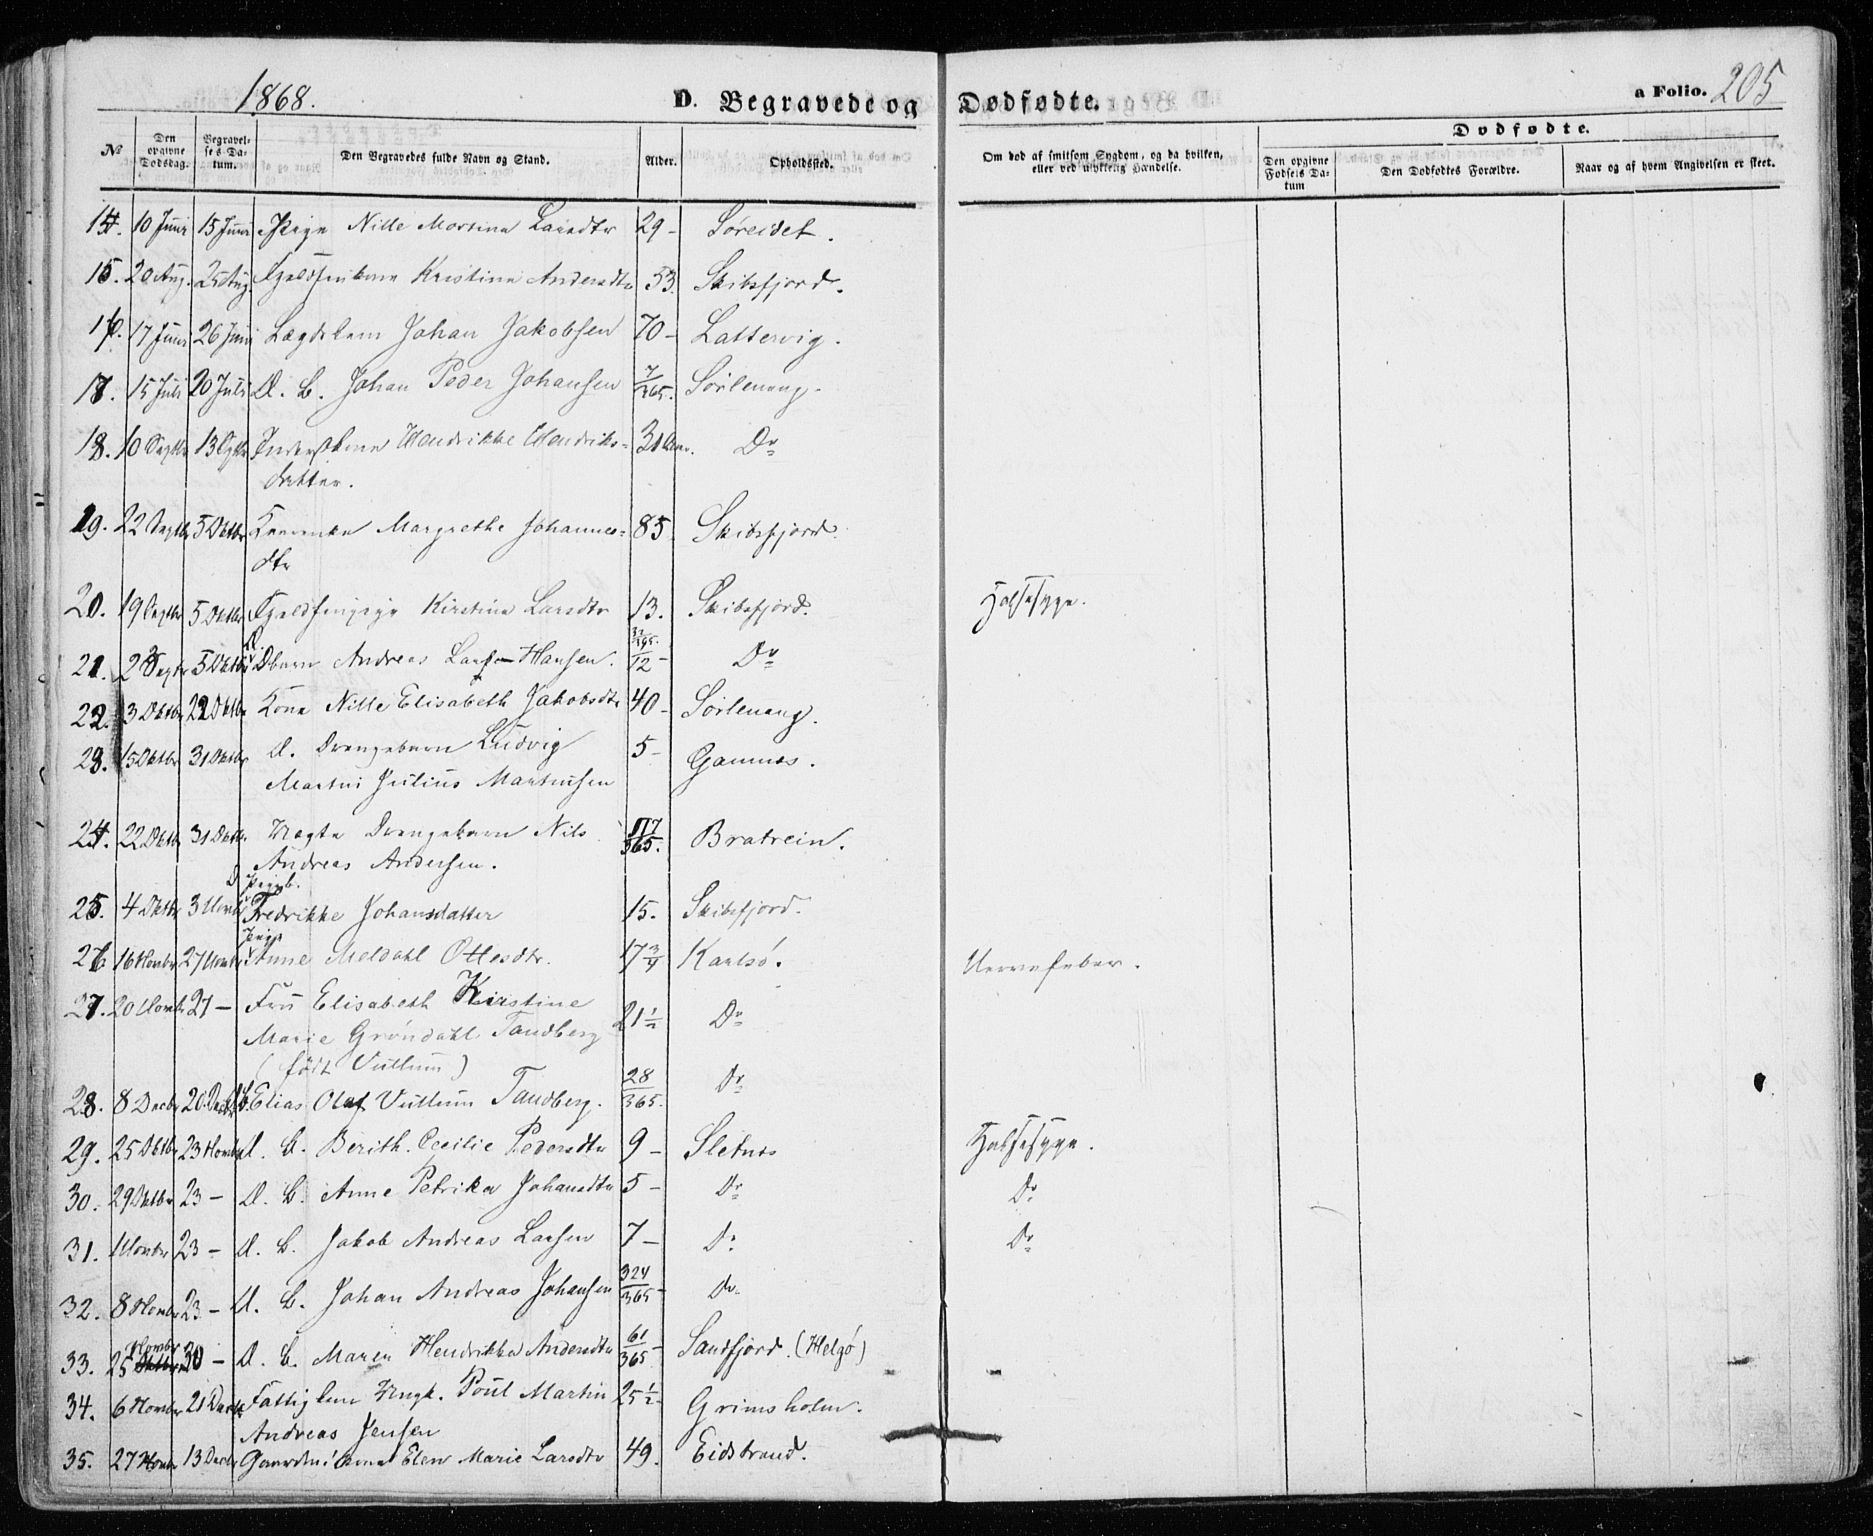 1868.
D. Begravede og Dødfødte.
a Folio. 205
No
Den opgivne Dødsdag.
Begravelses Datum.
Den Begravedes fulde Navn og Stand.
Alder.
Opholdssted.
Om død af smitsom Sygdom, og da hvilken, eller ved ulykkelig Hændelse.
Dødfødte.
Den opgivne Fødsels Datum
Den Dødfødtes Forældre.
Naar og af hvem Angivelsen er skeet.
14. 10 Juni 15 Juni Pige Nille Martina Larsdtr 29 - Søreidet.
15. 20 Aug. 25 Aug. Kristina Andersdtr 53. Skibsfjord.
16. 17 Juni 26 Juni Lægdslem Johan Jakobsen 70 - Lattervig.
17. 15 Juli 20 Juli D. B. Johan Peder Johansen 7/365. Sørlenang.
18. 10 Septbr 13 Septbr Hendrikke Hendriks=
datter. 31 Do
19. 22 Septbr 5 Oktbr Margrethe Johannes=
dtr 85 Skibsfjord.
20. 19 Septbr 5 Oktbr Kirstine Larsdtr 13. Skibsfjord. Halssyge.
21. 5 Oktbr Dbarn Andreas Hansen. Do
22. 3 Oktbr 22 Oktbr Kone Nille Elisabeth Jakobsdtr 40 - Sørlenang.
23. 15 Oktbr 31 Oktbr D. Drengebarn Ludvig
Martin Julius Martinsen 5 - Gamnes.
24. 22 Oktbr 31 Oktbr. Ægte Drengebarn Nils
Andreas Andersen. 117/365. Bratrein.
25. 4 Oktbr 3 Novbr Fredrikke Johansdatter 15. Skibsfjord.
26 16 Novbr 27 Novbr Pige Anne Meldahl Ottesdtr. 17 3/4 Karlsø. Nervefeber.
27. 20 Novbr 27 - Fru Elisabeth Kirstine
Marie Grøndahl Tandberg
(født Vullum) 21 1/2 Do
28. 8 Decbr 20 Decbr Elias Olaf Vullum Tandberg. 28/365. Do
29. 25 Oktbr 23 Novbr D. B. Berith Cecilie Pedersdtr 9 - Sletnes Halssyge.
30. 29 Oktbr 23 - D. B. Anne Petrikæ Johansdtr 5 - Do Do
31. 1 Novbr 23 - D. B. Jakob Andreas Larsen 7 - Do Do
32. 8 Novbr 23 - D. B. Johan Andreas Johansen 324/365 - Do
33. 25 Novbr 30 - D. B. Maren Hendrikka Andersdtr 61/365 - Sandfjord. (Helgø) - -
34. 6 Novbr 21 Decbr Fattiglem Ungk. Poul Martin
Andreas Jensen 25 1/2 - Grimsholm.
35. 27 Novbr 13 Decbr Elen Marie Larsdtr 49. Eidstrand.